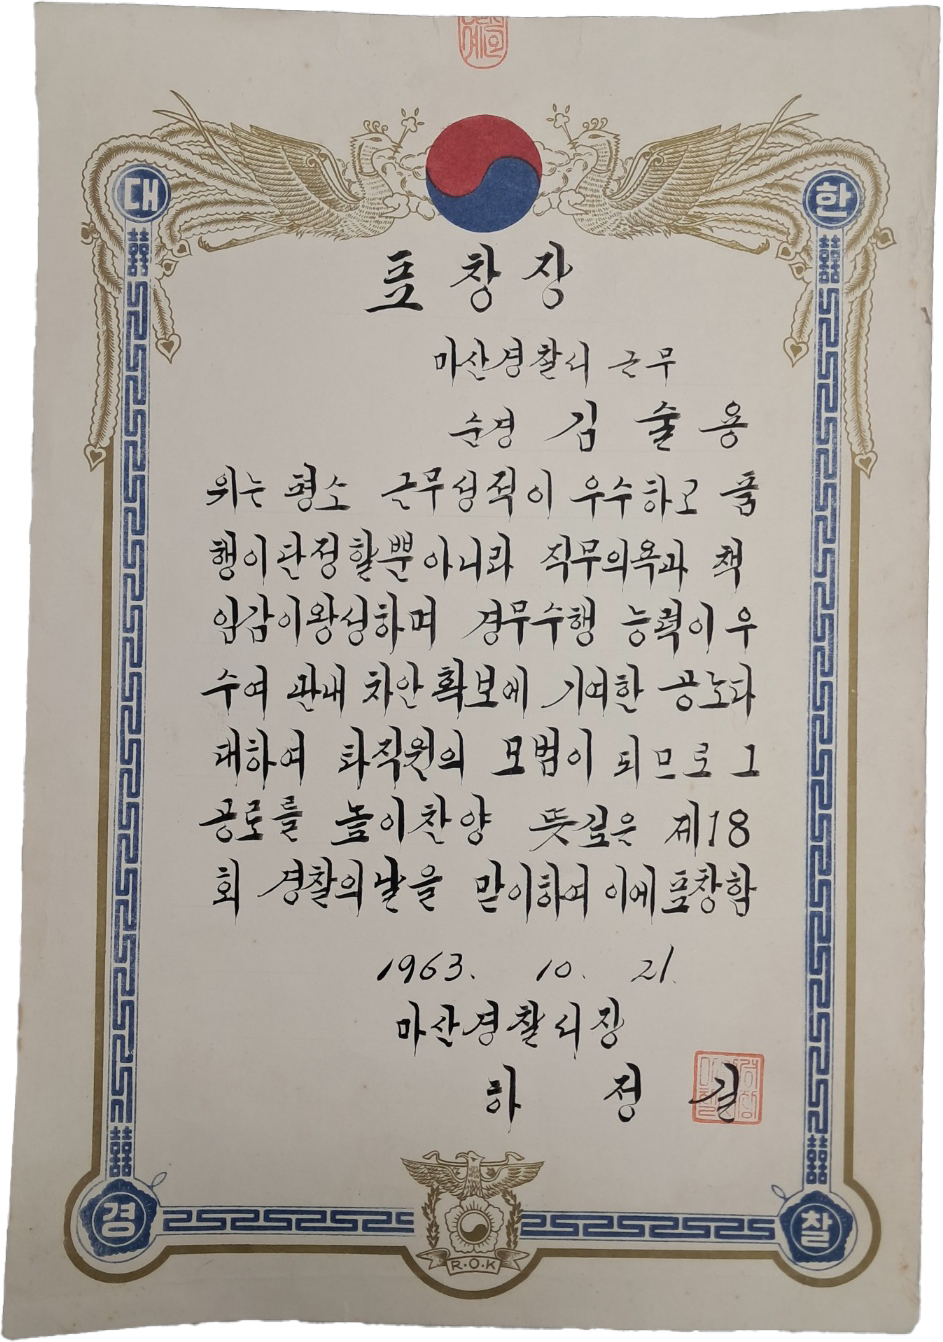 대 한
표창장
마산경찰서 근무
순경 김술용
위는 평소 근무성적이 우수하고 품
행이 단정할뿐 아니라 직무의욕과 책
임감이 왕성하며 경무수행 능력이 우
수여 관내 치안확보에 기여한 공노다
대하여 타직원의 모범이 되므로 그
공로를 높이찬양 뜻깊은 제18
회 경찰의날을 맏이하여 이에 표창함
1963. 10. 21.
마산경찰서장
하 정
경 찰
R·O·K